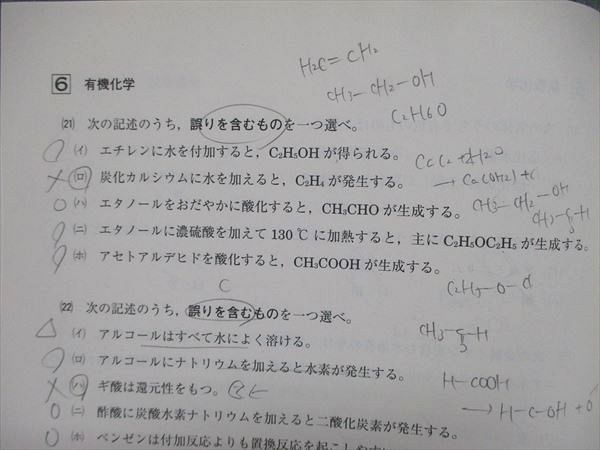 H₂C=CH₂
6 有機化学
CH₃-CH₂-OH
C₂H₆O
(21) 次の記述のうち，誤りを含むものを一つ選べ。
(イ) エチレンに水を付加すると，C₂H₅OHが得られる。
(ロ) 炭化カルシウムに水を加えると，C₂H₄が発生する。
(ハ) エタノールをおだやかに酸化すると，CH₃CHOが生成する。
CH₃-CH₂-OH
(ニ) エタノールに濃硫酸を加えて130℃に加熱すると，主にC₂H₅OC₂H₅が生成する。
(ホ) アセトアルデヒドを酸化すると，CH₃COOHが生成する。
C
(22) 次の記述のうち，誤りを含むものを一つ選べ。
(イ) アルコールはすべて水によく溶ける。
(ロ) アルコールにナトリウムを加えると水素が発生する。
(ハ) ギ酸は還元性をもつ。
H-COOH
(ニ) 酢酸に炭酸水素ナトリウムを加えると二酸化炭素が発生する。
(ホ) ベンゼンは付加反応よりも置換反応を起こしやす